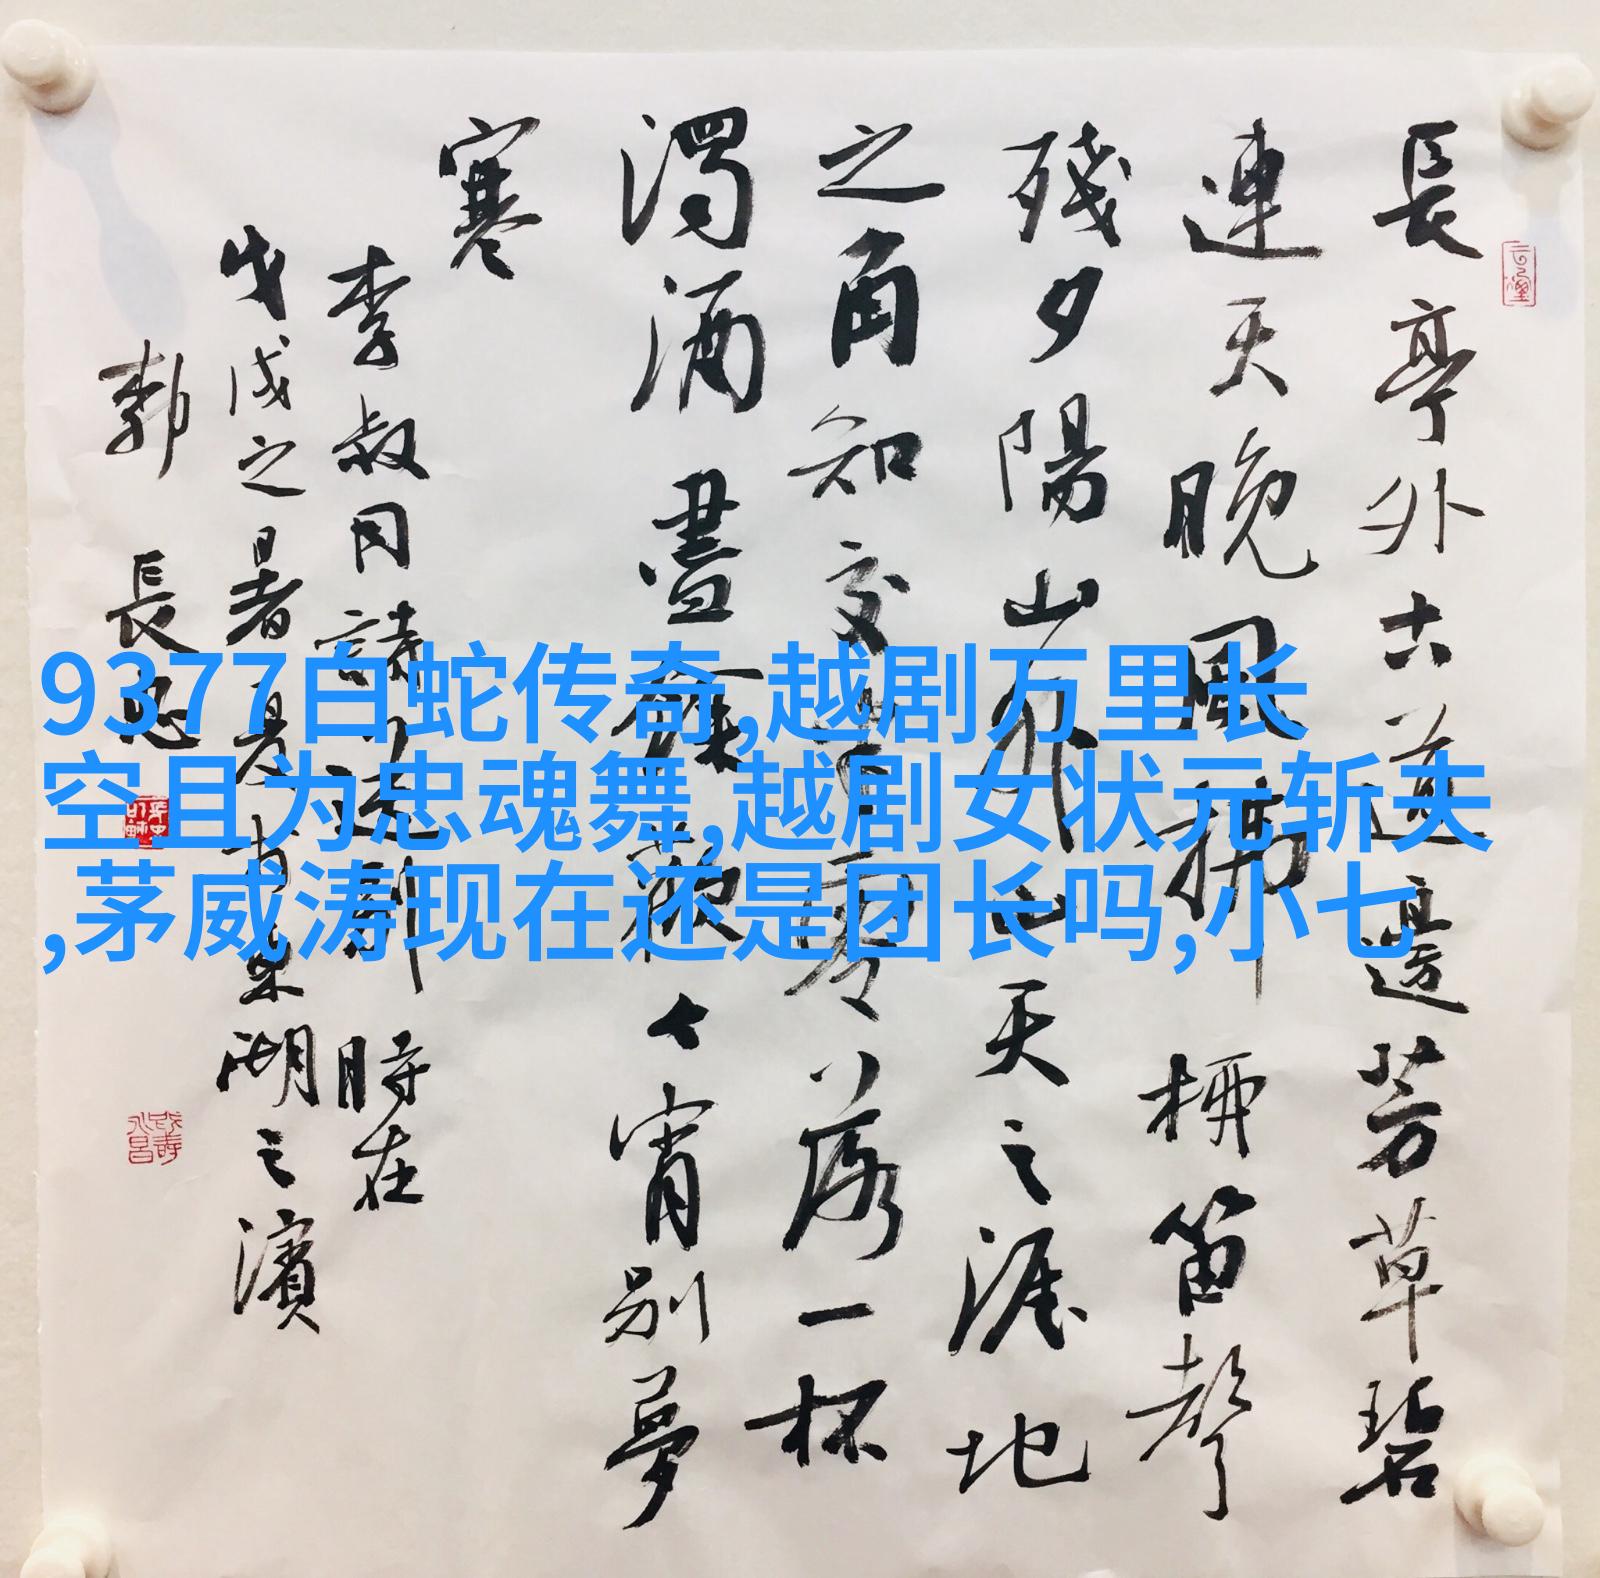 長亭外古道邊芳草碧
連天晚風拂柳笛聲
殘夕陽山外山天之涯地
之角知交半零落一杯
濁酒盡餘歡今宵別夢
寒
李叔同詩 時在
戊戌之暑 湖之濱
郭長
9377白蛇传奇,越剧万里长
空且为忠魂舞,越剧女状元斩夫
,茅威涛现在还是团长吗,小七